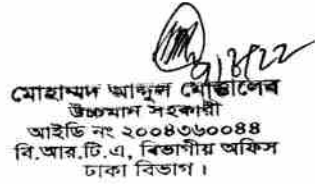 ৭/৪/২২
মোহাম্মদ আব্দুল মোত্তালেব
উচ্চমান সহকারী
আইডি নং ২০০৪৩৬০০৪৪
বি.আর.টি.এ, বিভাগীয় অফিস
ঢাকা বিভাগ।